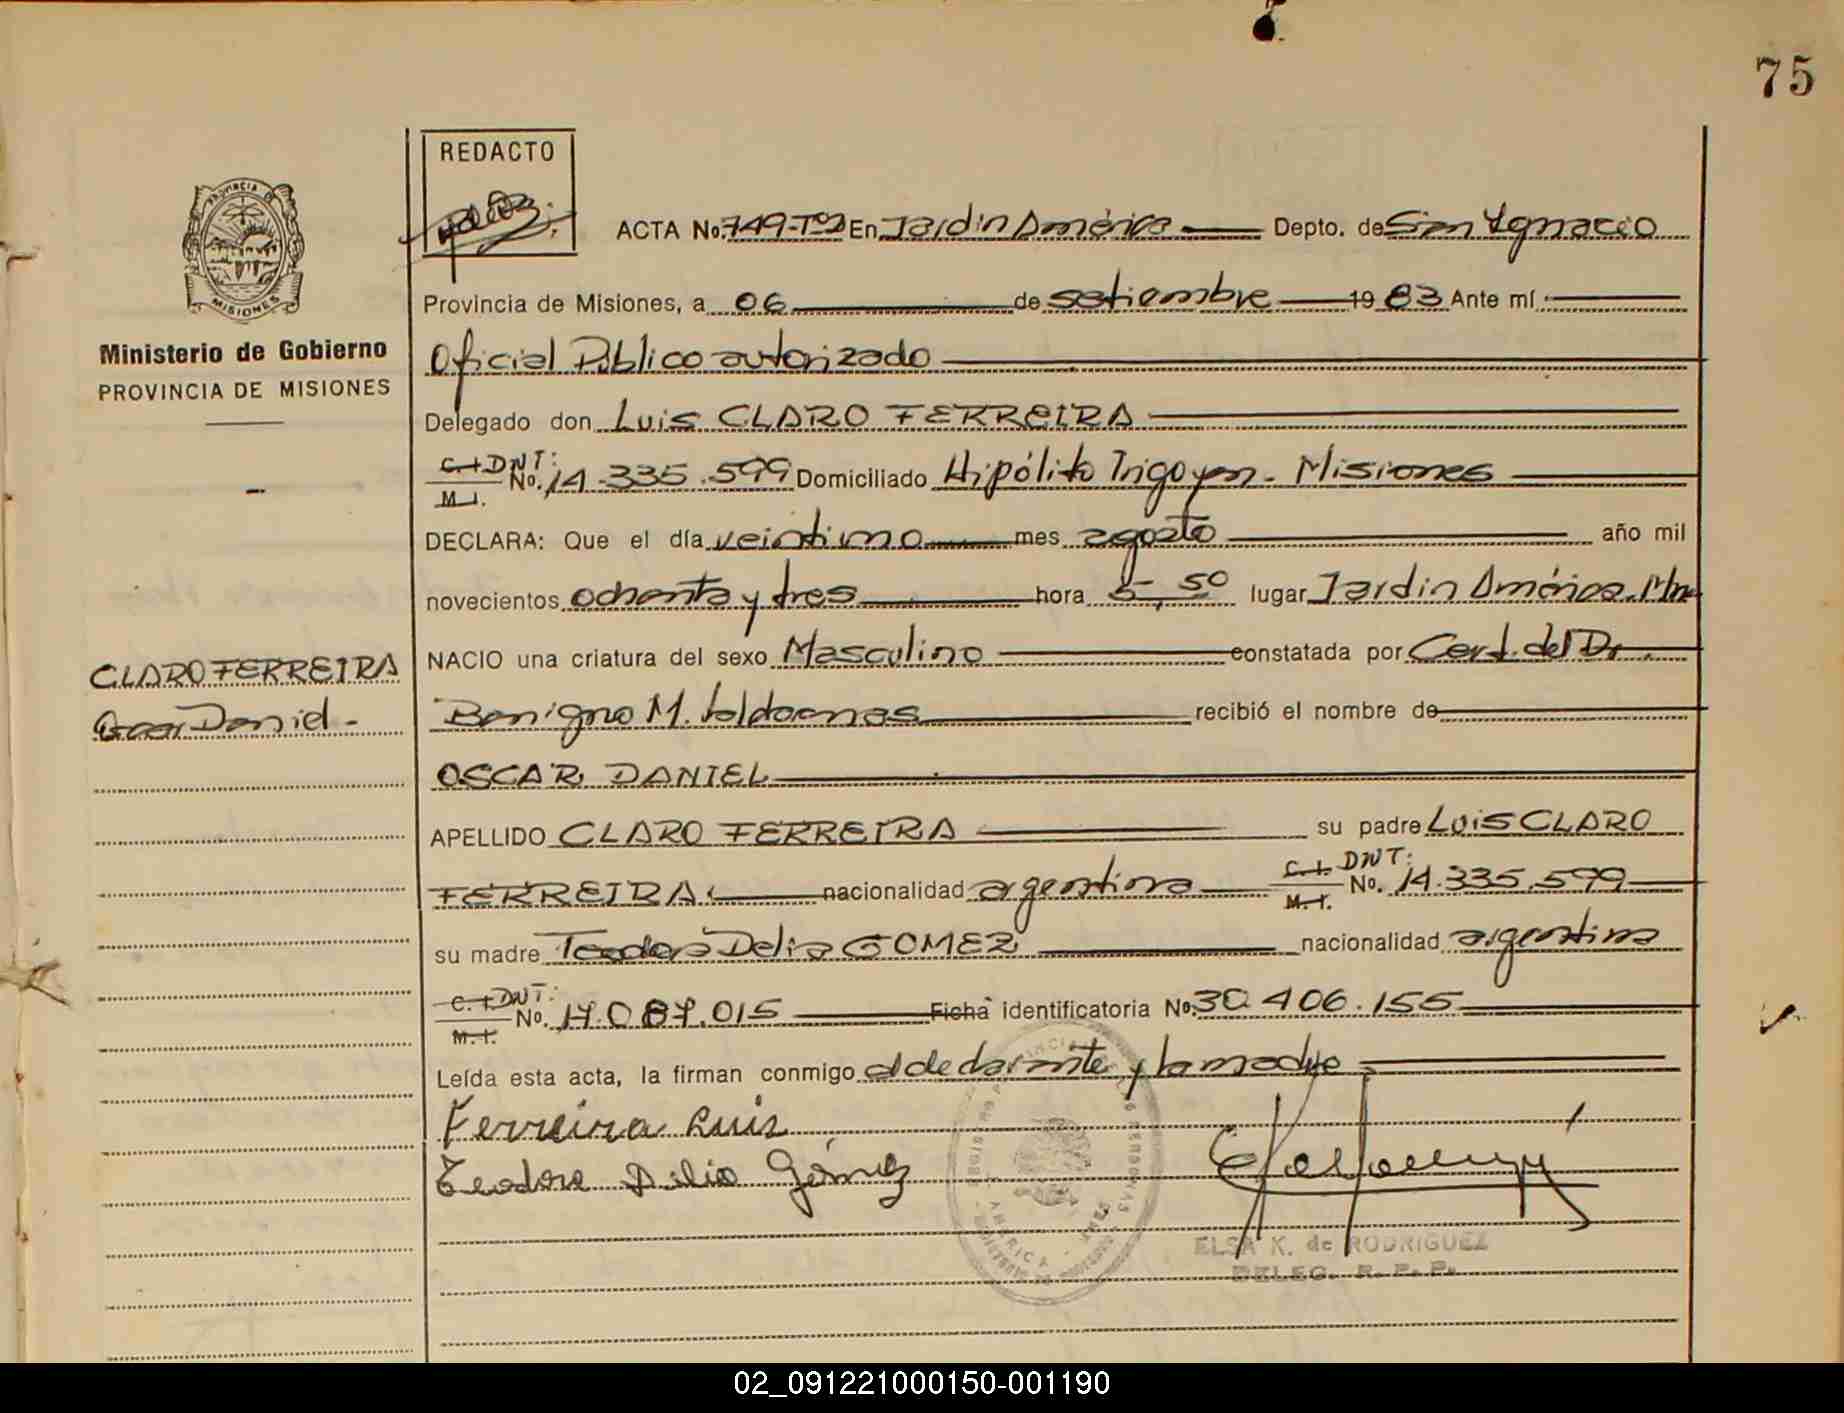 75
REDACTO
PROVINCIA DE MISIONES
ACTA No. 749-Tº2 En Jardín América Depto. de San Ignacio
Provincia de Misiones, a 06 de setiembre 19 83 Ante mí
Ministerio de Gobierno
PROVINCIA DE MISIONES
Oficial Público autorizado
Delegado don Luis CLARO FERREIRA
C. I. DNI: M. I. No. 14.335.599 Domiciliado Hipólito Irigoyen - Misiones
DECLARA: Que el día veintiuno mes agosto año mil
novecientos ochenta y tres hora 5,50 lugar Jardín América. Mnes
CLARO FERREIRA
Oscar Daniel.-
NACIO una criatura del sexo Masculino constatada por Cert. del Dr.
Benigno M. recibió el nombre de
OSCAR DANIEL
APELLIDO CLARO FERREIRA su padre LUIS CLARO
FERREIRA nacionalidad argentina C. I. DNI: M. I. No. 14.335.599
su madre Teodora Delia GOMEZ nacionalidad argentina
C. I. DNI: M. I. No. 17.087.015 Ficha identificatoria No. 30.406.155
Leída esta acta, la firman conmigo el declarante y la madre
Ferreira Luis
Teodora Delia Gómez
ELSA K. de RODRIGUEZ
DELEG. R. P. P.
02_091221000150-001190